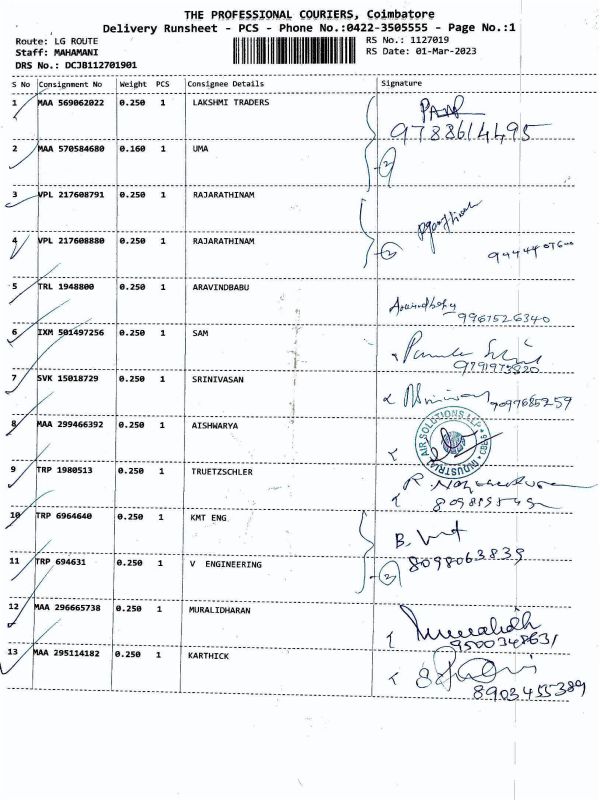 THE PROFESSIONAL COURIERS, Coimbatore
Delivery Runsheet - PCS - Phone No.:0422-3505555 - Page No.:1
Route: LG ROUTE RS No.: 1127019
Staff: MAHAMANI RS Date: 01-Mar-2023
DRS No.: DCJB112701901
S No Consignment No Weight PCS Consignee Details Signature
1 MAA 569062022 0.250 1 LAKSHMI TRADERS
9788614495
2 MAA 570584680 0.160 1 UMA
2
3 VPL 217608791 0.250 1 RAJARATHINAM
4 VPL 217608880 0.250 1 RAJARATHINAM
2
5 TRL 1948800 0.250 1 ARAVINDBABU
Aravindbabu
9967526340
6 IXM 501497256 0.250 1 SAM
7 SVK 15018729 0.250 1 SRINIVASAN
8 MAA 299466392 0.250 1 AISHWARYA
INDUSTRIAL AIR SOLUTIONS LLP
9 TRP 1980513 0.250 1 TRUETZSCHLER
10 TRP 6964640 0.250 1 KMT ENG
B.
8098063839
11 TRP 694631 0.250 1 V ENGINEERING
2
12 MAA 296665738 0.250 1 MURALIDHARAN
Muralidh
9500348631
13 MAA 295114182 0.250 1 KARTHICK
8903455389